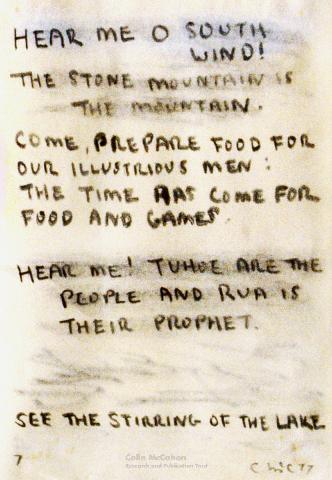 HEAR ME O SOUTH
WIND!
THE STONE MOUNTAIN IS
THE MOUNTAIN.
COME, PREPARE FOOD FOR
OUR ILLUSTRIOUS MEN:
THE TIME HAS COME FOR
FOOD AND GAMES.
HEAR ME! TUHOE ARE THE
PEOPLE AND RUA IS
THEIR PROPHET.
SEE THE STIRRING OF THE LAKE
7
Colin McCahon
Research and Publication Trust
C McC 77